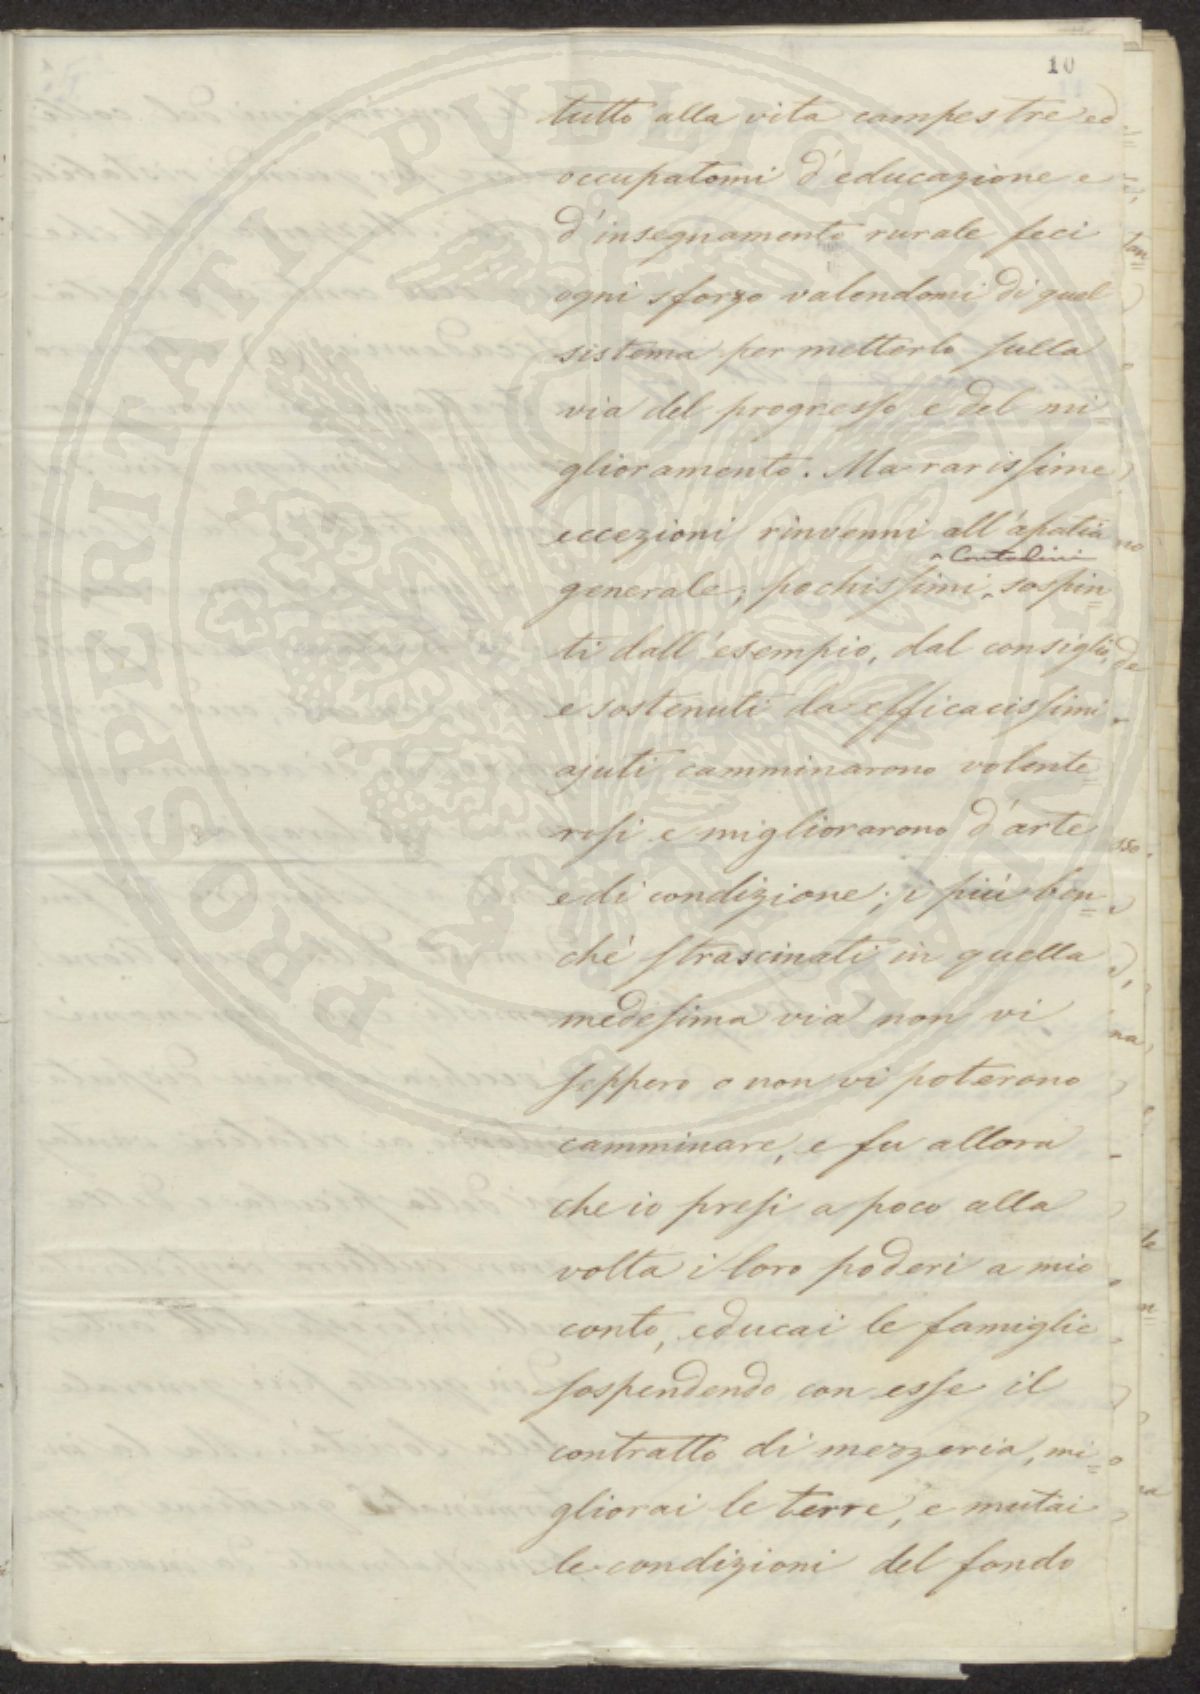 10
tutto alla vita campestre ed
occupatomi d'educazione e
d'insegnamento rurale feci
ogni sforzo valendomi di quel
sistema per metterlo sulla
via del progresso e del mi
glioramento. Ma rarissime
eccezioni rinvenni all'apatia
Contadini
generale; pochissimi, sospin=
ti dall'esempio, dal consiglio,
e sostenuti da efficacissimi
ajuti camminarono volente=
rosi e migliorarono d'arte
e di condizione; i più ben=
chè strascinati in quella
medesima via non vi
seppero o non vi poterono
camminare, e fu allora
che io presi a poco alla
volta i loro poderi a mio
conto, educai le famiglie
sospendendo con esse il
contratto di mezzeria, mi=
gliorai le terre, e mutai
le condizioni del fondo
PROSPERITATI PUBLICAE